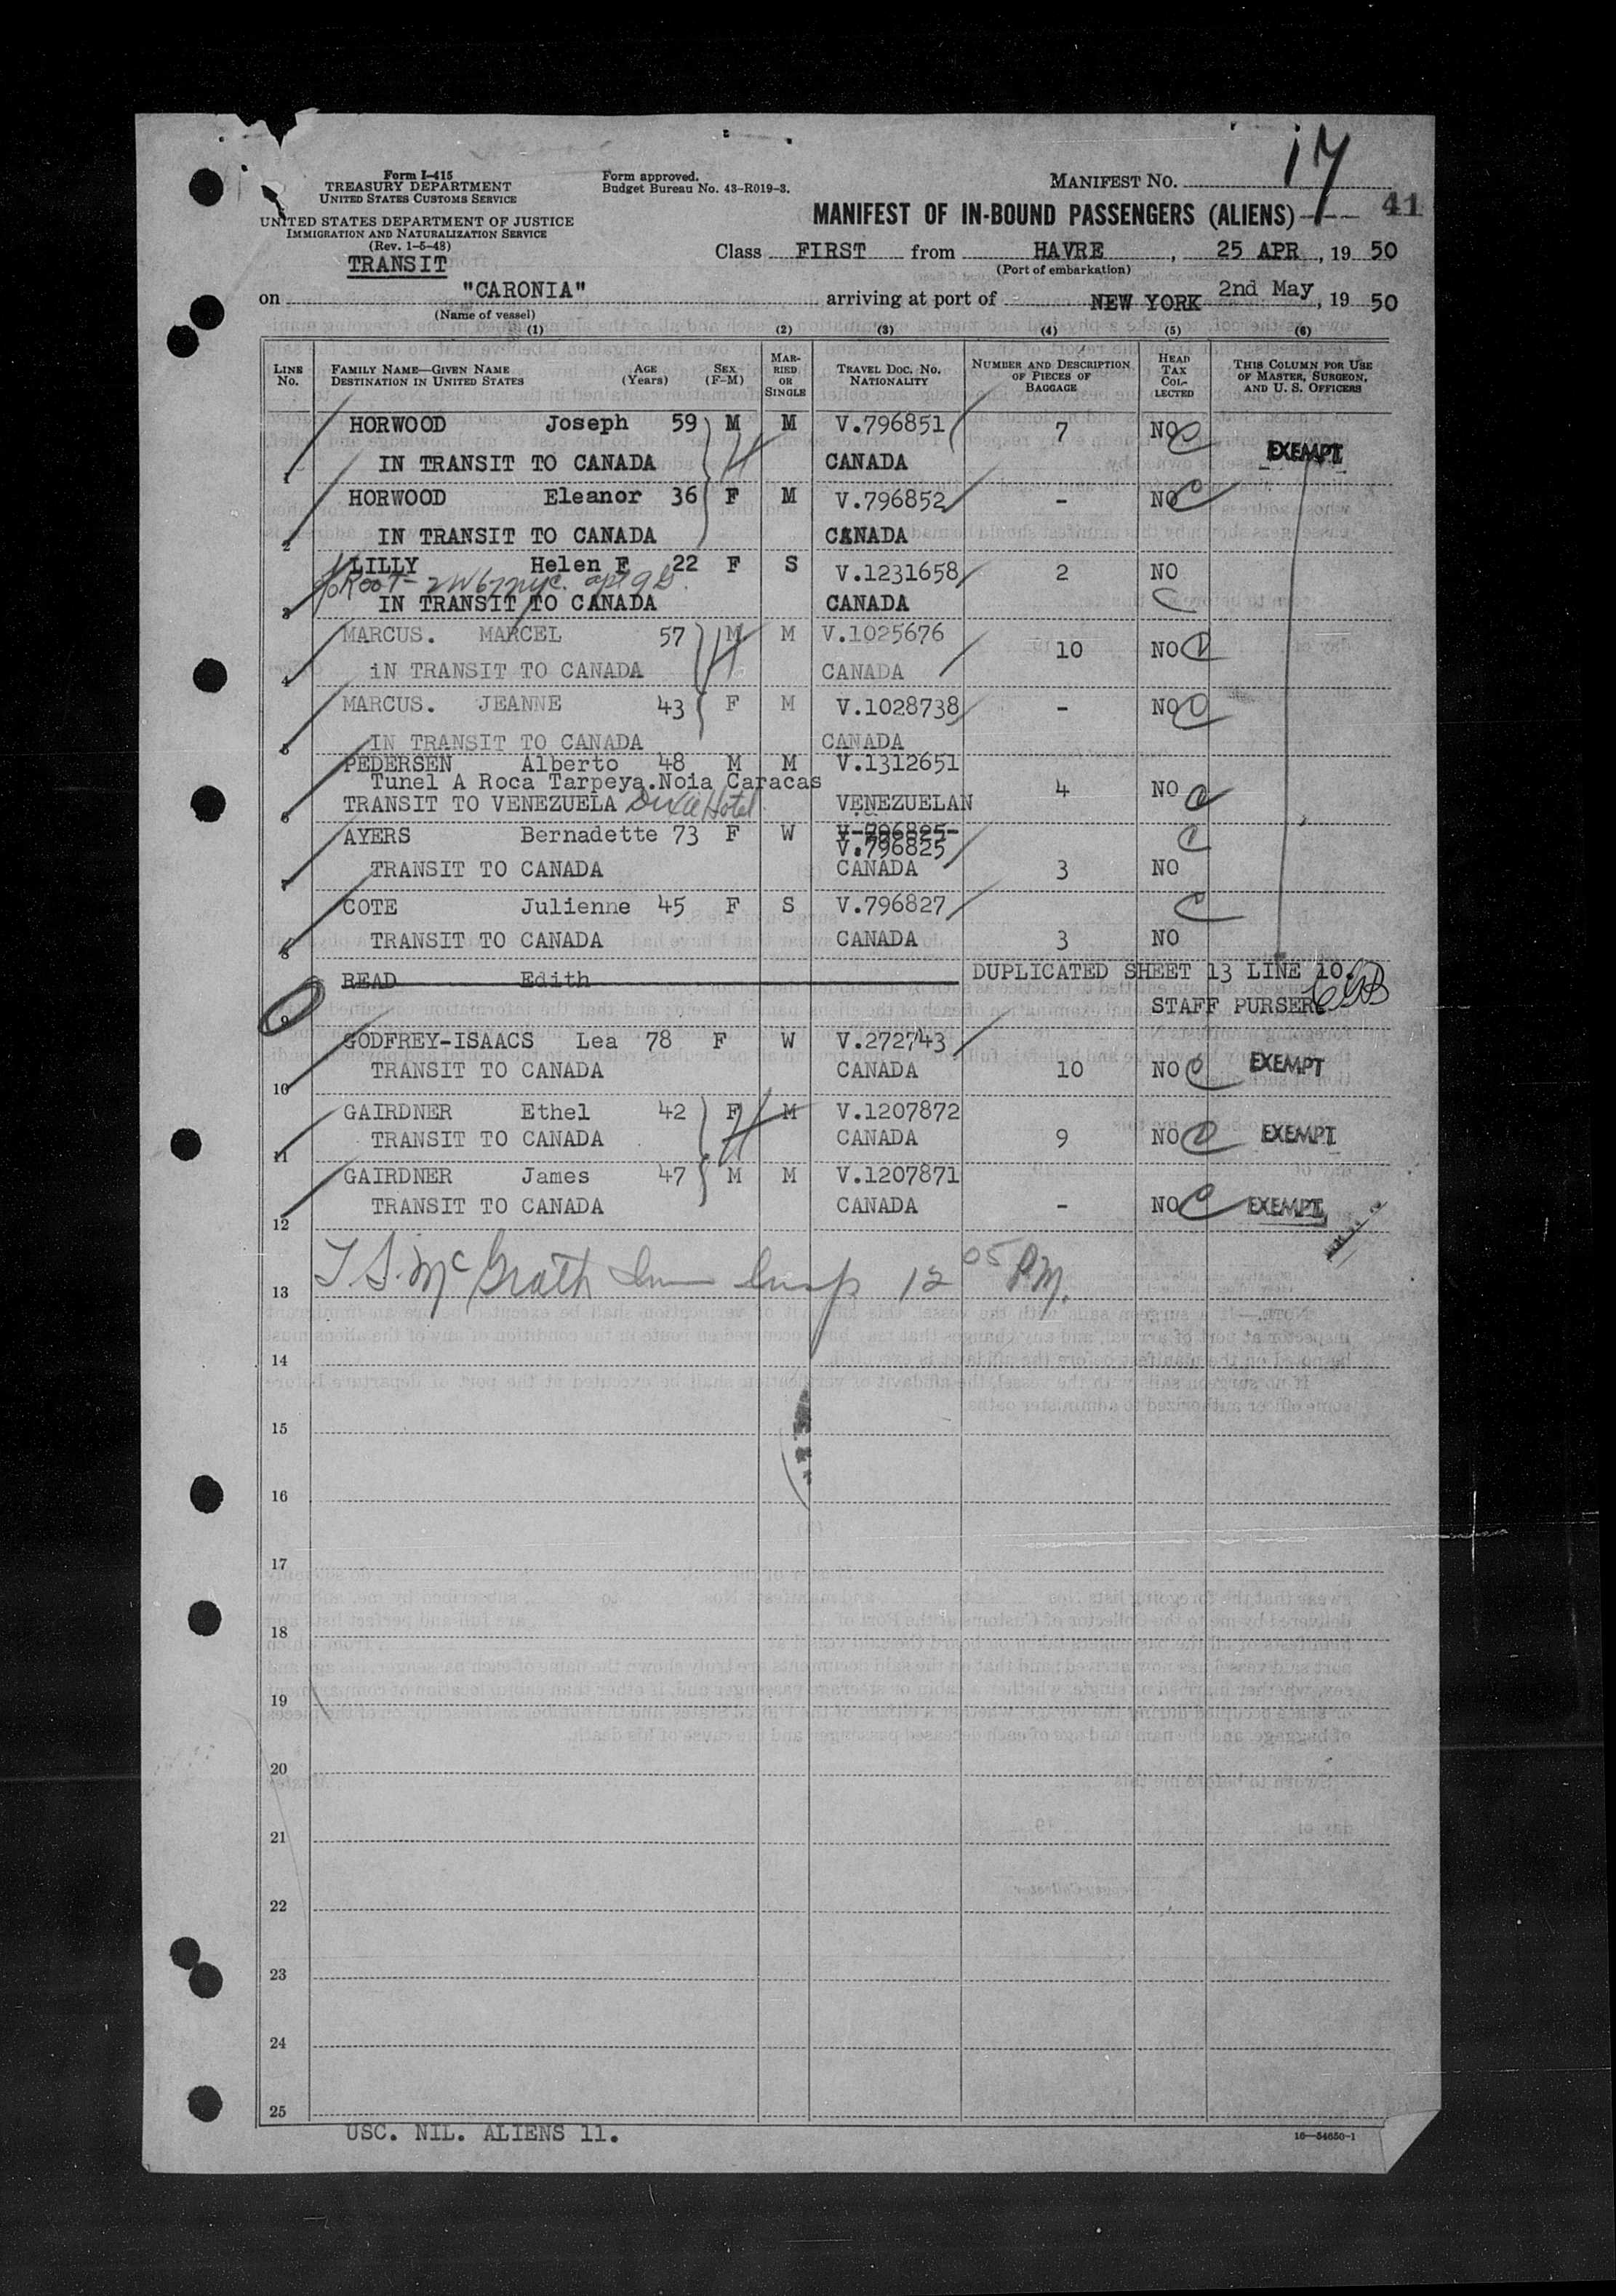 17
Form I-415
TREASURY DEPARTMENT
UNITED STATES CUSTOMS SERVICE
Form approved.
Budget Bureau No. 43-R019-3.
MANIFEST No.
UNITED STATES DEPARTMENT OF JUSTICE
IMMIGRATION AND NATURALIZATION SERVICE
(Rev. 1-5-48)
MANIFEST OF IN-BOUND PASSENGERS (ALIENS) 41
TRANSIT
Class FIRST from HAVRE, 25 APR, 19 50
(Port of embarkation)
on "CARONIA" arriving at port of NEW YORK 2nd May, 19 50
(Name of vessel)
(1) (2) (3) (4) (5) (6)
LINE No. FAMILY NAME—GIVEN NAME DESTINATION IN UNITED STATES AGE (Years) SEX (F-M) MARRIED OR SINGLE TRAVEL DOC. NO. NATIONALITY NUMBER AND DESCRIPTION OF PIECES OF BAGGAGE HEAD TAX COLLECTED THIS COLUMN FOR USE OF MASTER, SURGEON, AND U. S. OFFICERS
HORWOOD Joseph 59 M M V.796851 7 NO C EXEMPT
1 IN TRANSIT TO CANADA CANADA
HORWOOD Eleanor 36 F M V.796852 - NO C
2 IN TRANSIT TO CANADA CANADA
LILLY Helen F 22 F S V.1231658 2 NO
c/o Root - 2W67 nyc. apt 9G.
3 IN TRANSIT TO CANADA CANADA C
MARCUS. MARCEL 57 M M V.1025676 10 NO C
4 iN TRANSIT TO CANADA CANADA
MARCUS. JEANNE 43 F M V.1028738 - NO C
5 IN TRANSIT TO CANADA CANADA
PEDERSEN Alberto 48 M M V.1312651
Tunel A Roca Tarpeya.Noia Caracas 4 NO C
6 TRANSIT TO VENEZUELA Dixie Hotel VENEZUELAN
AYERS Bernadette 73 F W V-796825- C
V.796825
7 TRANSIT TO CANADA CANADA 3 NO
COTE Julienne 45 F S V.796827 C
8 TRANSIT TO CANADA CANADA 3 NO
READ Edith DUPLICATED SHEET 13 LINE 10.
9 STAFF PURSER.
GODFREY-ISAACS Lea 78 F W V.272743
10 TRANSIT TO CANADA CANADA 10 NO C EXEMPT
GAIRDNER Ethel 42 F M V.1207872
11 TRANSIT TO CANADA CANADA 9 NO C EXEMPT
GAIRDNER James 47 M M V.1207871
12 TRANSIT TO CANADA CANADA - NO C EXEMPT
13 T.S. McGrath Imm Insp 12 05 P.M.
14
15
16
17
18
19
20
21
22
23
24
25
USC. NIL. ALIENS 11.
16—54650-1